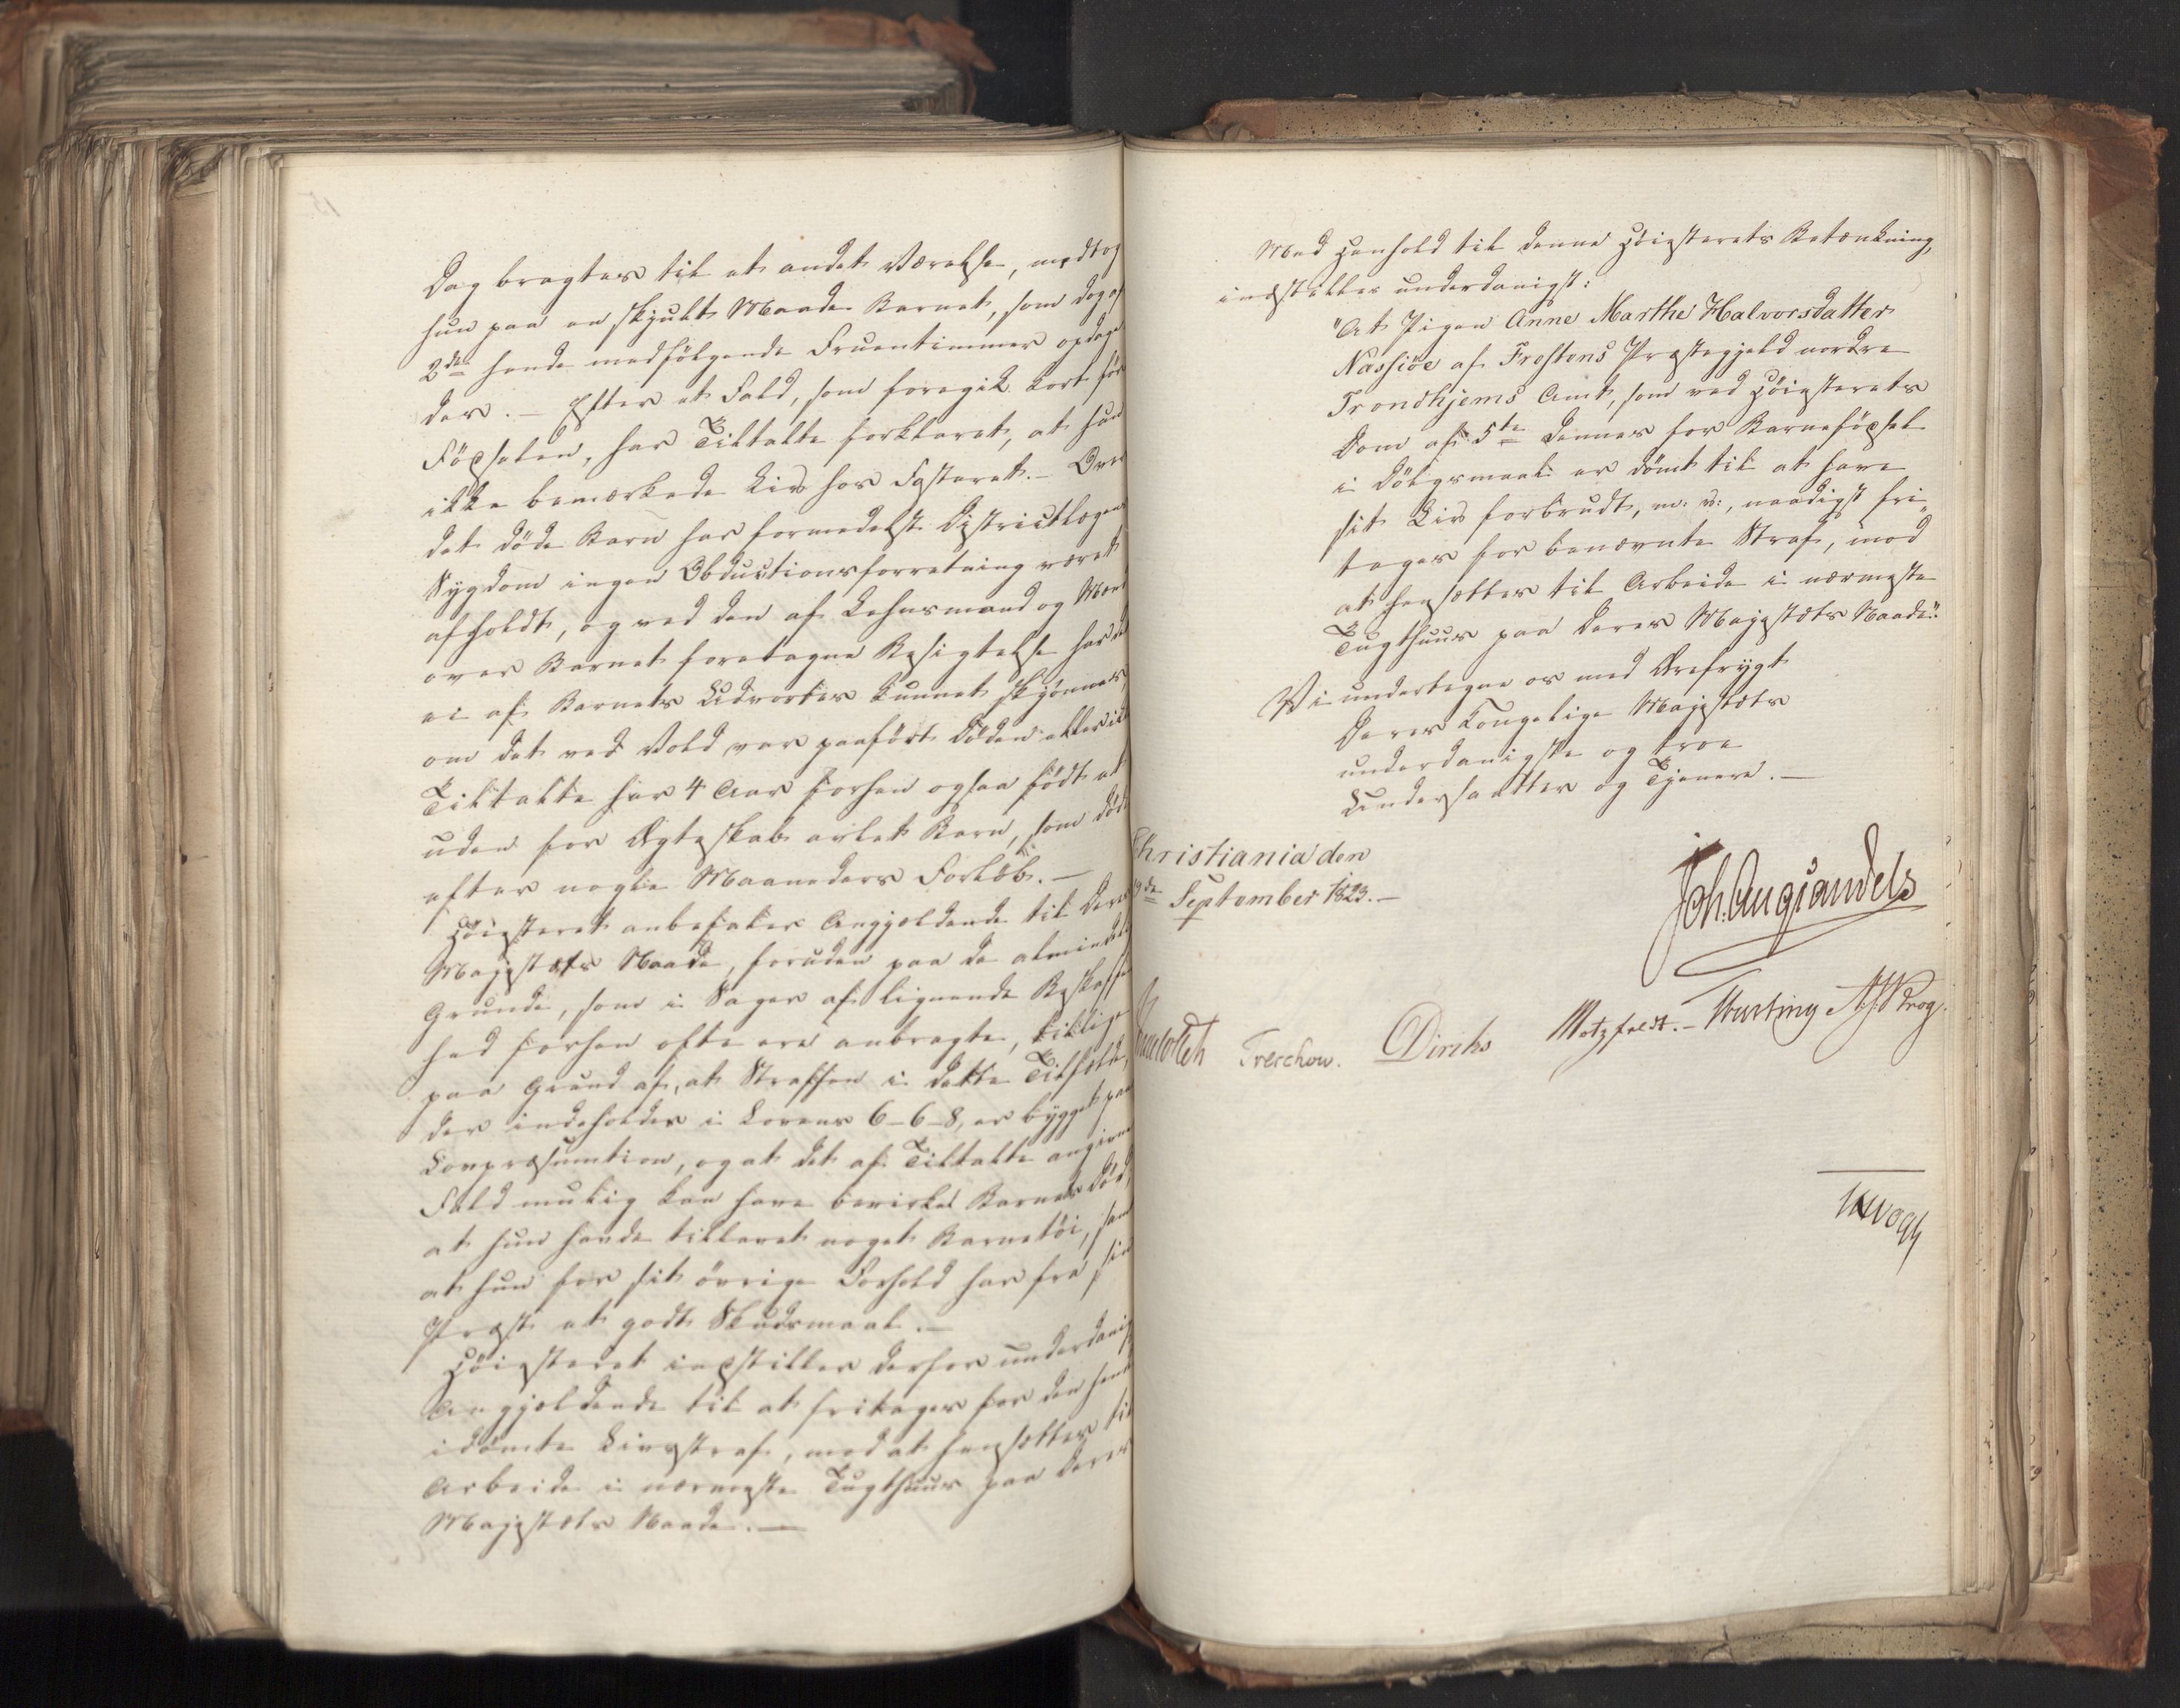 Dag bragtes til et andet Værelse, medtog
hun paa en skjult Maade Barnet, som dog af
2de hende medfölgende Fruentimmer opdage
des. – Efter et Fald, som foregik kort för
Födselen, har Tiltalte forklaret, at hun
ikke bemærkede Liv hos Fosteret. – Over
det döde Barn har formedelst Districtlægens
Sygdom ingen Obductionsforretning været
afholdt, og ved den af Lehnsmand og Mænd
over Barnet foretagne Besigtelse har de
ei af Barnets Udvortes kunnet skjönnes,
om det ved Vold var paafört Döden eller ik
Tiltalte har 4 Aar forhen ogsaa födt et
uden for Ægteskab avlet Barn, som döde
efter nogle Maaneders Forlöb. –
Höiesteret anbefaler Angjældende til Deres
Majestæts Naade, foruden paa de almindelig
Grunde, som i Sager af lignende Beskaffen
hed forhen ofte ere anbragte, tillige
paa Grund af, at Straffen i dette Tilfælde,
der indeholdes i Lovens 6–6–8, er bygget paa
Lovpræsumtion, og at det af Tiltalte angivne
Fald muelig kan have bevirket Barnets Död,
at hun havde tillavet noget Barnetöi, samt
at hun for sit övrige Forhold har fra sin
Præst et godt Skudsmaal. –
Höiesteret indstiller derfor underdanigst
Angjældende til at fritages for den hende
idömte Livsstraf, mod at hensættes til
Arbeide i nærmeste Tugthuus paa Deres
Majestæts Naade. –
Med Henhold til denne Höiesterets Betænkning,
indstilles underdanigst:
"At Pigen Anne Marthe Halvorsdatter
Nassiöe af Frostens Præstegjeld nordre
Trondhjems Amt, som ved Höiesterets
Dom af 5te dennes for Barnefödsel
i Dölgsmaal er dömt til at have
sit Liv forbrudt, m: v:, naadigst fri„
tages for benævnte Straf, imod
at hensættes til Arbeide i nærmeste
Tugthuus paa Deres Majestæts Naade".
Vi undertegne os med Ærefrygt
Deres Kongelige Majestæts
underdanigste og troe
Undersaatter og Tjenere. –
Christiania den
de September 1823. –
Joh. Aug Sandels
Treschow.
Diriks
Motzfeldt. –
J. H. Vogt